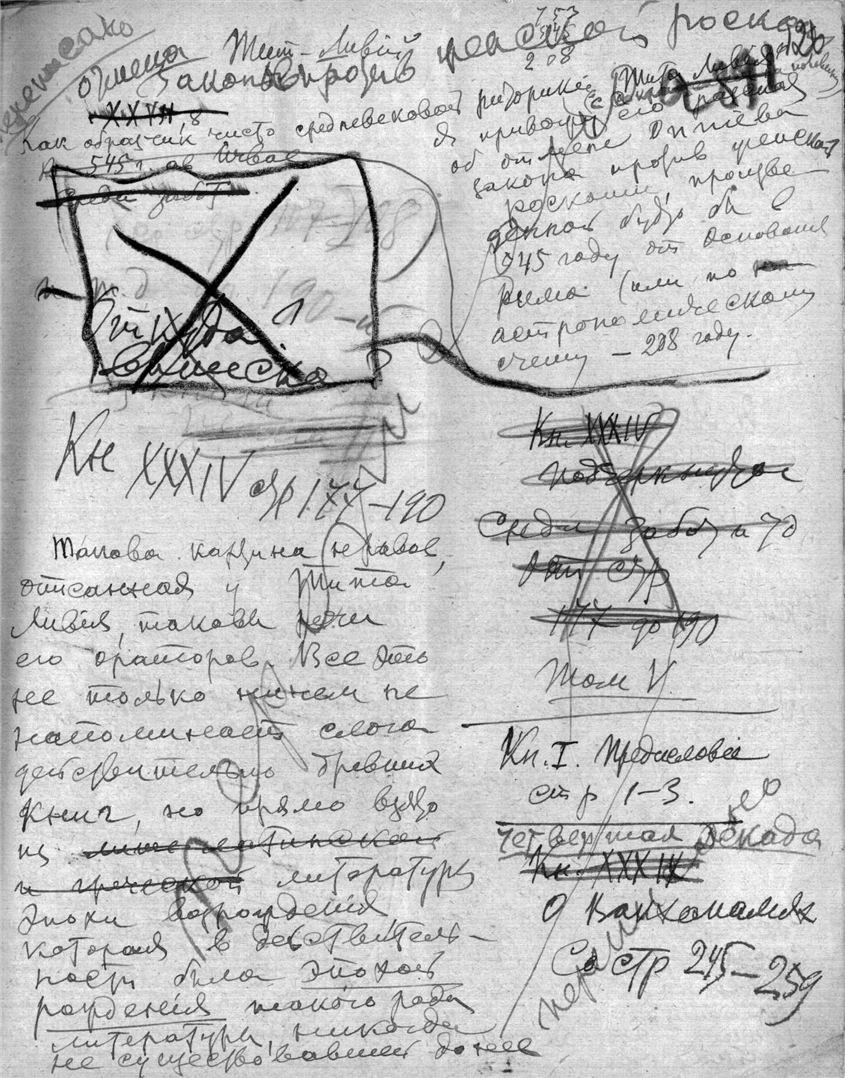 Отмена Тит-Ливий
закона против женской роскоши
753
545
208
XXVII, 8
Как образчик чисто средневековой риторики
я привожу его рассказ
об отмене Оппиева
закона против женской
роскоши, произве
денной будто бы в
545 году от основания
Рима (или по
астрономическому
счету — 208 году.
Откуда
выписка?
Кн XXXIV стр 177–190
Такова картина нравов,
описанная у Тита
Ливия, таковы речи
его ораторов. Все это
не только ничем не
напоминает слога
действительно древних
книг, но прямо взято
из
и греческой литературы
эпохи возрождения
которая в действитель-
ности была эпохой
рождения такого рода
литературы, никогда
не существовавшей до нее
Кн. XXXIV
подчеркнутое
Среди забот и
стр
177 до 190
Том V.
Кн. I. Предисловие
стр 1–3.
Четвертая декада
Кн. XXXIX
О Вакханалиях
Со стр 245–259